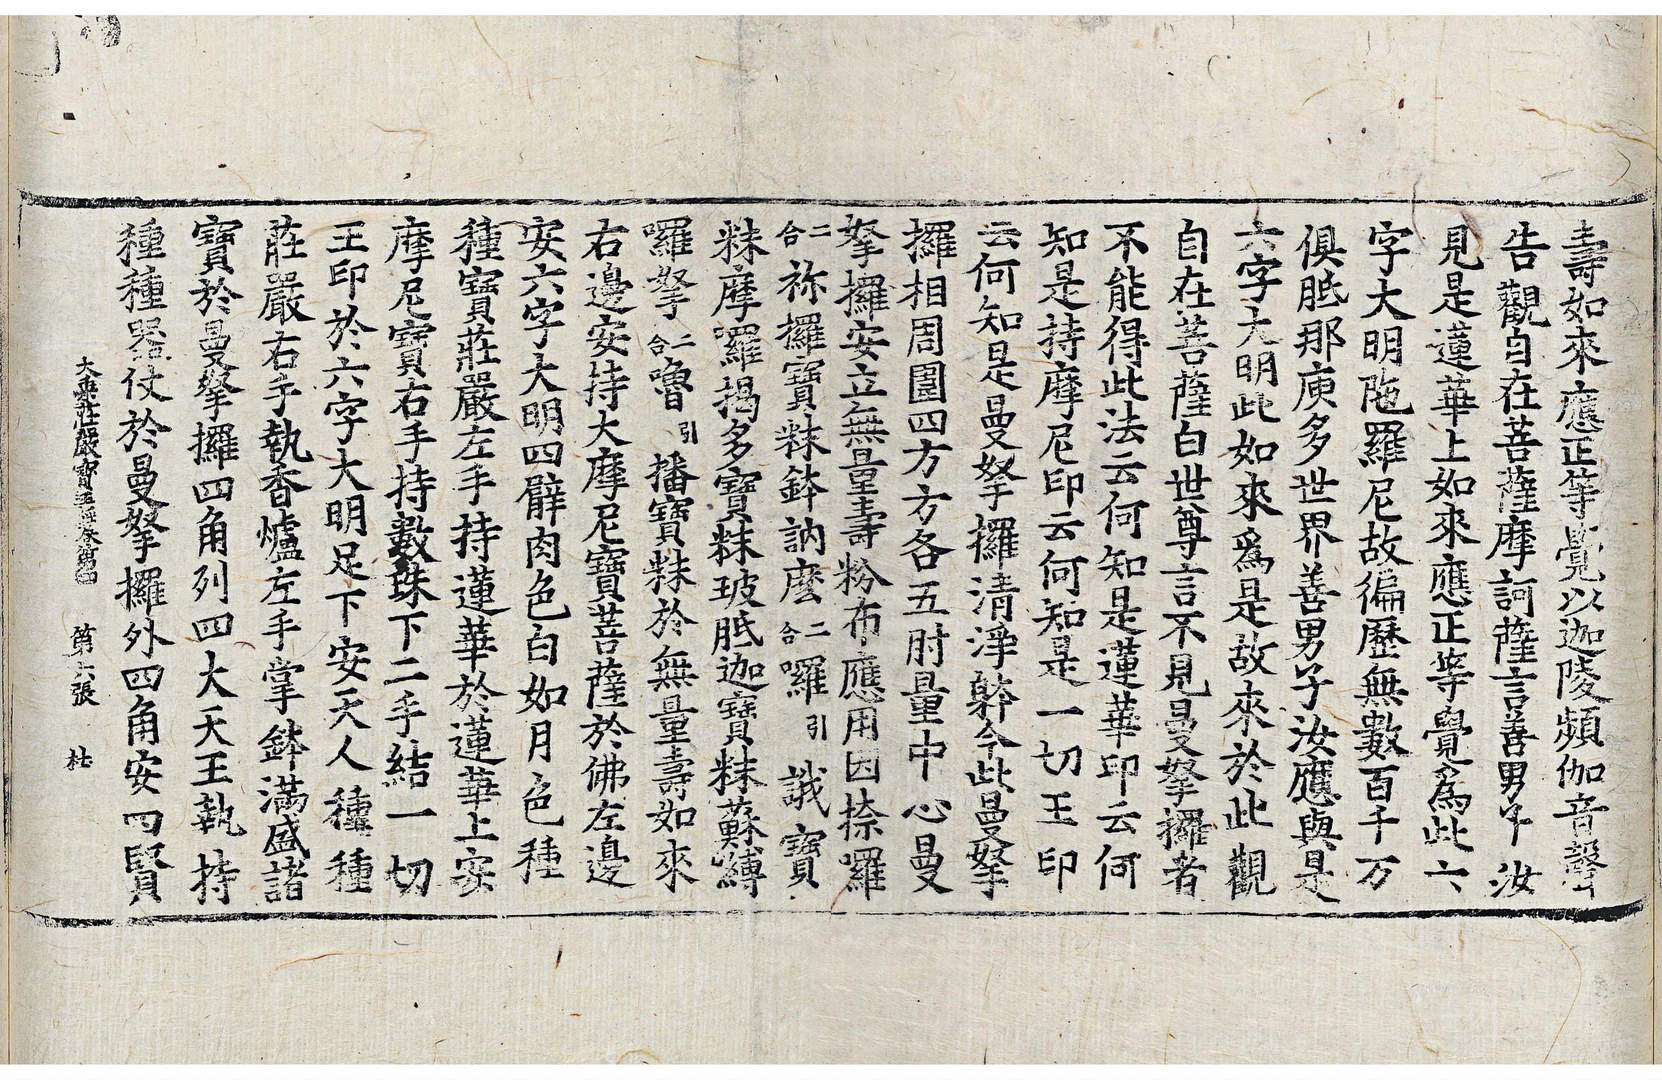 壽如來應正等覺以迦陵頻伽音聲
告觀自在菩薩摩訶薩言善男子汝
見是蓮華上如來應正等覺爲此六
字大明陁羅尼故徧歷無數百千万
俱胝那庾多世界善男子汝應與是
六字大明此如來爲是故來於此觀
自在菩薩白世尊言不見曼拏攞者
不能得此法云何知是蓮華印云何
知是持摩尼印云何知是一切王印
云何知是曼拏攞清淨軆今此曼拏
攞相周圍四方方各五肘量中心曼
拏攞安立無量壽粉布應用因捺囉
二合祢攞寶粖鉢訥麽二合囉引誐寶
粖摩囉揭多寶粖玻胝迦寶粖蘇嚩
囉拏二合嚕引播寶粖於無量壽如來
右邊安持大摩尼寶菩薩於佛左邊
安六字大明四臂肉色白如月色種
種寶莊嚴左手持蓮華於蓮華上安
摩尼寶右手持數珠下二手結一切
王印於六字大明足下安天人種種
莊嚴右手執香爐左手掌鉢滿盛諸
寶於曼拏攞四角列四大天王執持
種種器仗於曼拏攞外四角安四賢
大乘莊嚴寶王經卷第四 第六張 杜